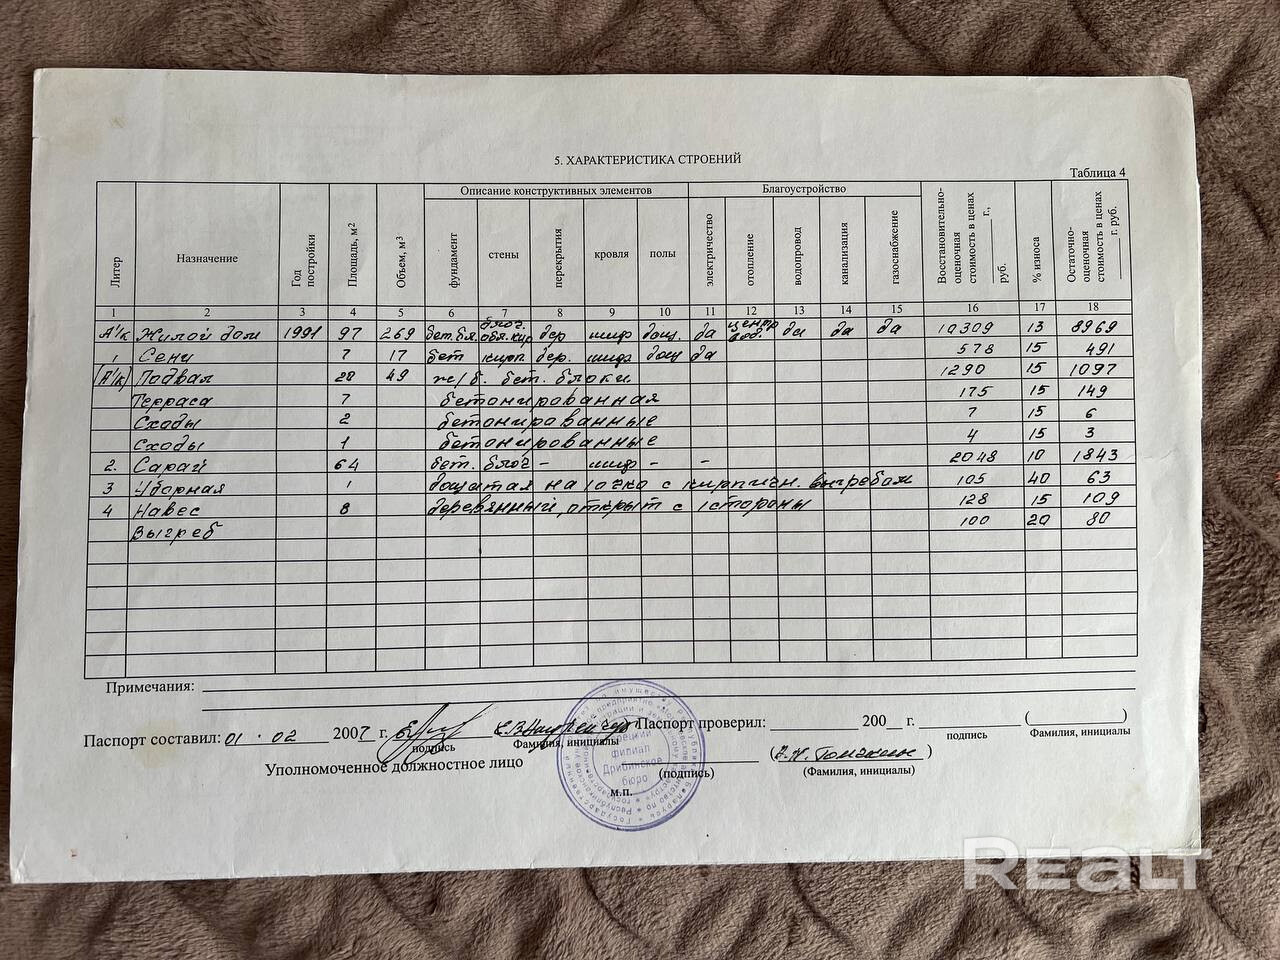 5. ХАРАКТЕРИСТИКА СТРОЕНИЙ
Таблица 4
Литер Назначение Год постройки Площадь, м2 Объем, м3 Описание конструктивных элементов Благоустройство Восстановительно-оценочная стоимость в ценах ______ г., руб. % износа Остаточно-оценочная стоимость в ценах ______ г. руб.
фундамент стены перекрытия кровля полы электричество отопление водопровод канализация газоснабжение
1 2 3 4 5 6 7 8 9 10 11 12 13 14 15 16 17 18
А1/к Жилой дом 1991 97 269 бет.бл. блоч. обл.кир дер шиф дощ. да центр вод. да да да 10309 13 8969
1 Сени 7 17 бет кирп дер. шиф дощ да 578 15 491
(А1/к) Подвал 28 49 ж/б. бет. блоки 1290 15 1097
Терраса 7 бетонированная 175 15 149
Сходы 2 бетонированные 7 15 6
Сходы 1 бетонированные 4 15 3
2. Сарай 64 бет. блоч - шиф - - 2048 10 1843
3 Уборная 1 дощатая на 1 очко с кирпичн. выгребом 105 40 63
4 Навес 8 деревянный, открыт с 1 стороны 128 15 109
Выгреб 100 20 80
Примечания:
Паспорт составил: 01 . 02 2007 г. Паспорт проверил: 200 г. ( )
подпись Фамилия, инициалы подпись Фамилия, инициалы
Уполномоченное должностное лицо
(подпись) (Фамилия, инициалы)
м.п.
филиал
Дрибинское
бюро
REALT